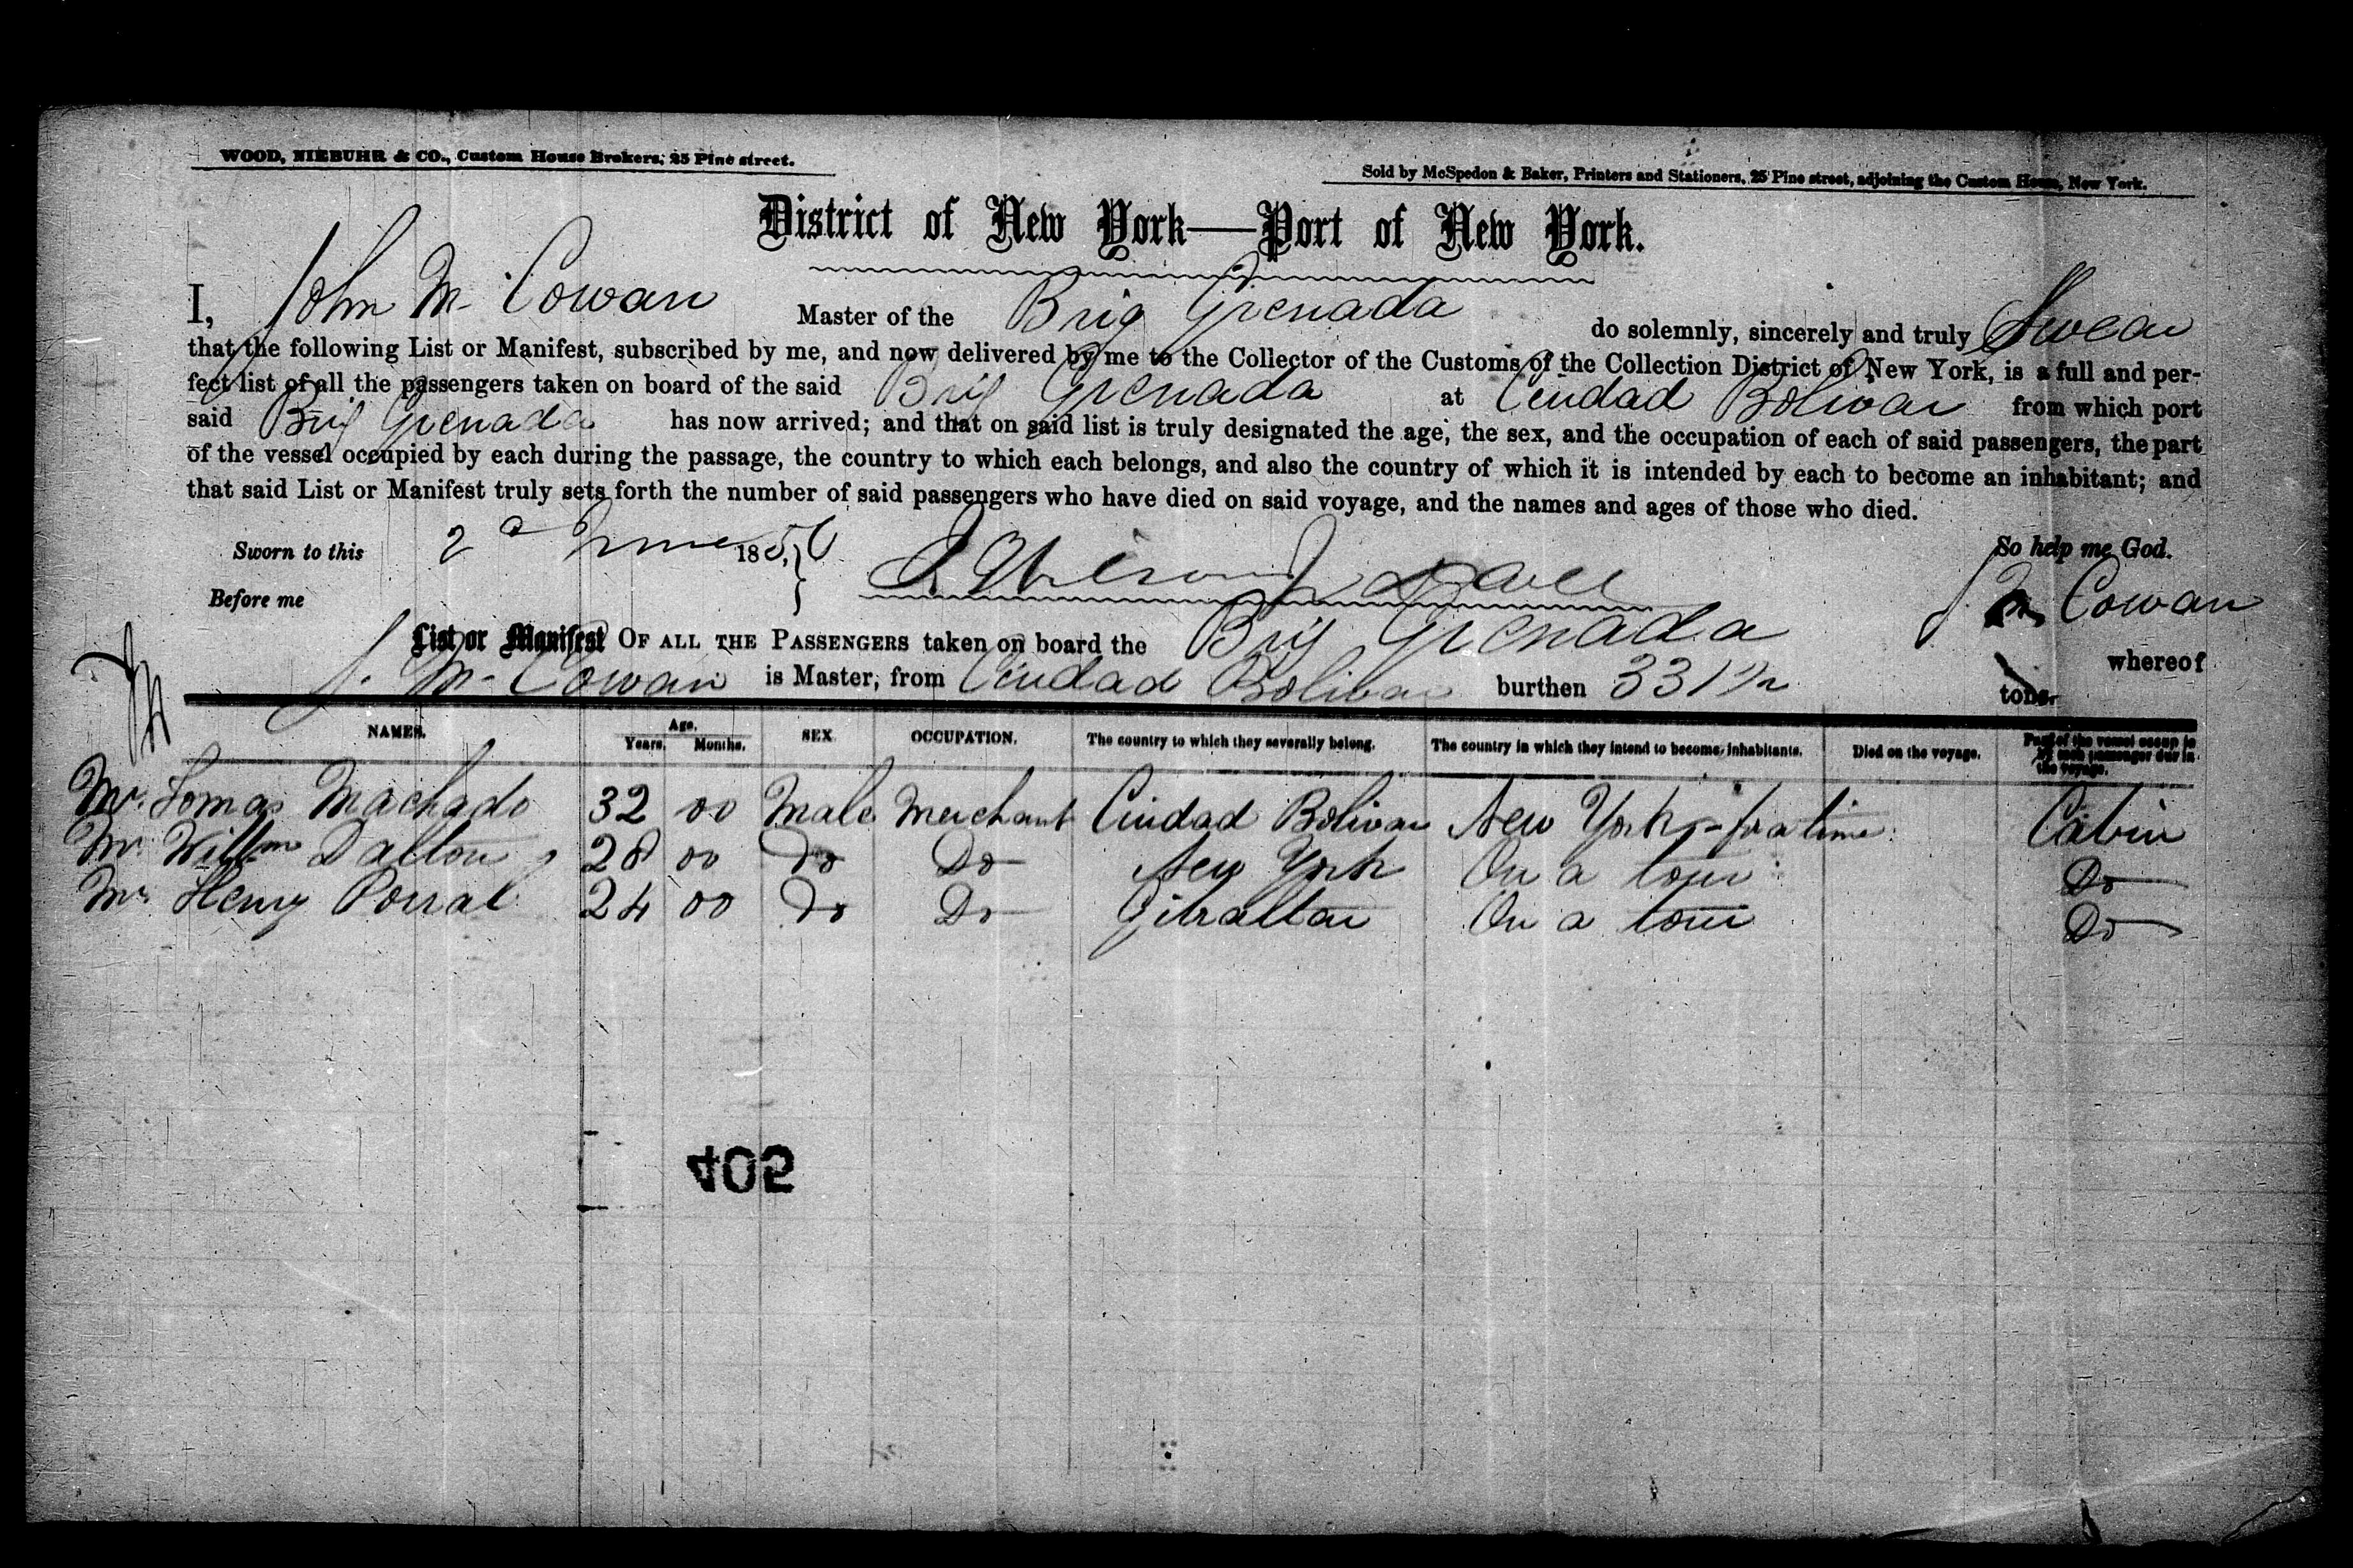 WOOD, NIEBUHR & CO., Custom House Brokers, 25 Pine street.
Sold by McSpedon & Baker, Printers and Stationers, 25 Pine street, adjoining the Custom House, New York.
District of New York—Port of New York.
I, John M. Cowan Master of the Brig Grenada do solemnly, sincerely and truly Swear
that the following List or Manifest, subscribed by me, and now delivered by me to the Collector of the Customs of the Collection District of New York, is a full and per-
fect list of all the passengers taken on board of the said Brig Grenada at Ciudad Bolivar from which port
said Brig Grenada has now arrived; and that on said list is truly designated the age, the sex, and the occupation of each of said passengers, the part
of the vessel occupied by each during the passage, the country to which each belongs, and also the country of which it is intended by each to become an inhabitant; and
that said List or Manifest truly sets forth the number of said passengers who have died on said voyage, and the names and ages of those who died.
Sworn to this 2d June 1856 So help me God.
Before me J. M. Cowan
List or Manifest OF ALL THE PASSENGERS taken on board the Brig Grenada whereof
J. M. Cowan is Master, from Ciudad Bolivar burthen 331 1/2 tons.
NAMES. Age. Years. Months. SEX. OCCUPATION. The country to which they severally belong. The country in which they intend to become inhabitants. Died on the voyage. Part of the vessel occup
by each passenger dur in
the voyage.
Mr. Tomas Machado 32 00 Male Merchant Ciudad Bolivar New York - for a time Cabin
Mr. Willm Dalton 28 00 Do Do New York On a tour Do
Mr. Henry Porral 24 00 Do Do Gibraltar On a tour Do
405